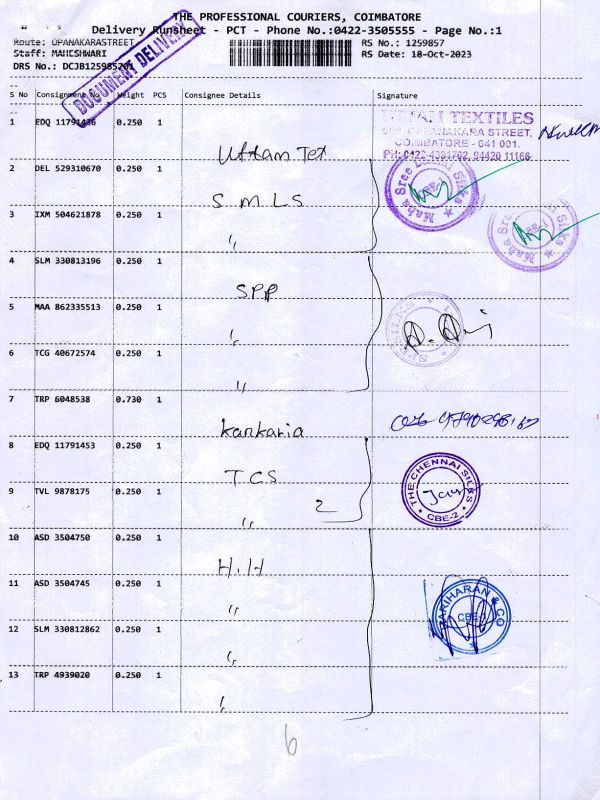 THE PROFESSIONAL COURIERS, COIMBATORE
Delivery Runsheet - PCT - Phone No.:0422-3505555 - Page No.:1
Route: OPANAKARASTREET
RS No.: 1259857
Staff: MAHESHWARI
RS Date: 18-Oct-2023
DRS No.: DCJB125985701
DOCUMENT DELIVERY
S No Consignment No Weight PCS Consignee Details Signature
1 EDQ 11791436 0.250 1 Uttam Tex
TEXTILES
OPPANAKARA STREET,
COIMBATORE - 641 001.
PH: 0422-4381702, 94420 11166
2 DEL 529310670 0.250 1 S.M.L.S
Maha Sree Silks
3 IXM 504621878 0.250 1 "
Maha Sree Silks
4 SLM 330813196 0.250 1 SPP
5 MAA 862335513 0.250 1 "
6 TCG 40672574 0.250 1 "
7 TRP 6048538 0.730 1 Kankaria
8 EDQ 11791453 0.250 1 T.C.S
THE CHENNAI SILKS
CBE-2
9 TVL 9878175 0.250 1 " 2
10 ASD 3504750 0.250 1 H.H
11 ASD 3504745 0.250 1 "
HARIHARAN & CO
CBE-1
12 SLM 330812862 0.250 1 "
13 TRP 4939020 0.250 1 "
6